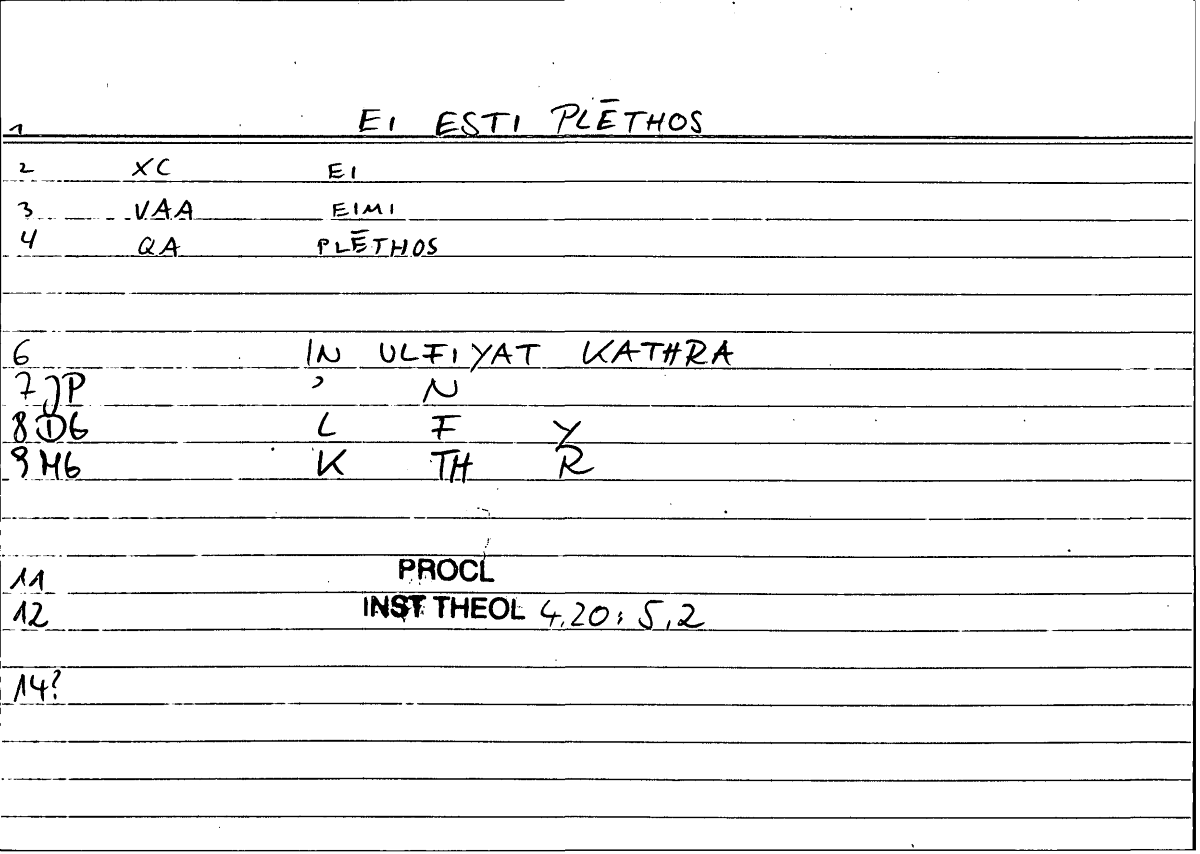 1 EI ESTI PLĒTHOS
2 XC EI
3 VAA EIMI
4 QA PLĒTHOS
6 IN ULFIYAT KATHRA
7 JP ʼ N
8 D6 L F Y
9 M6 K TH R
11 PROCL
12 INST THEOL 4.20: 5.2
14?